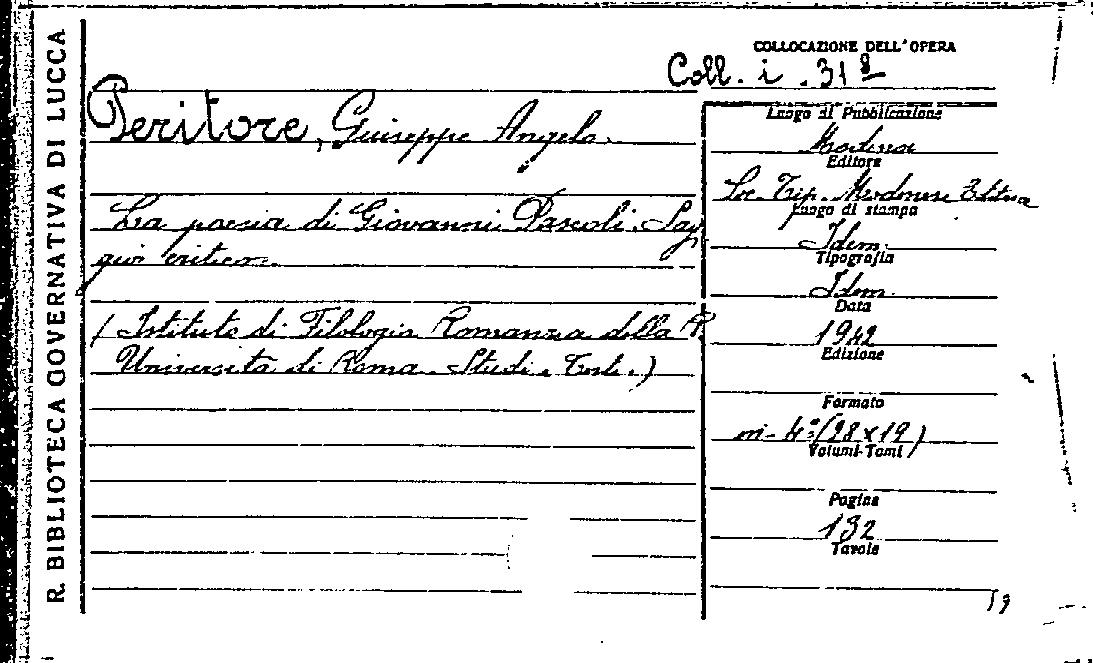 R. BIBLIOTECA GOVERNATIVA DI LUCCA
COLLOCAZIONE DELL'OPERA
Coll. i. 31 8
Peritore, Giuseppe Angelo.
La poesia di Giovanni Pascoli. Sag
gio critico.
( Istituto di Filologia Romanza della R.
Università di Roma. Studi e Testi.)
Luogo di Pubblicazione
Modena
Editore
Soc. Tip. Modenese Editrice
Luogo di stampa
Idem.
Tipografia
Idem.
Data
1942
Edizione
Formato
in-4° (28x19)
Volumi-Tomi
Pagine
132
Tavole